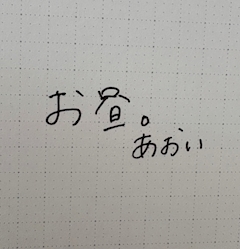 お昼。
あおい